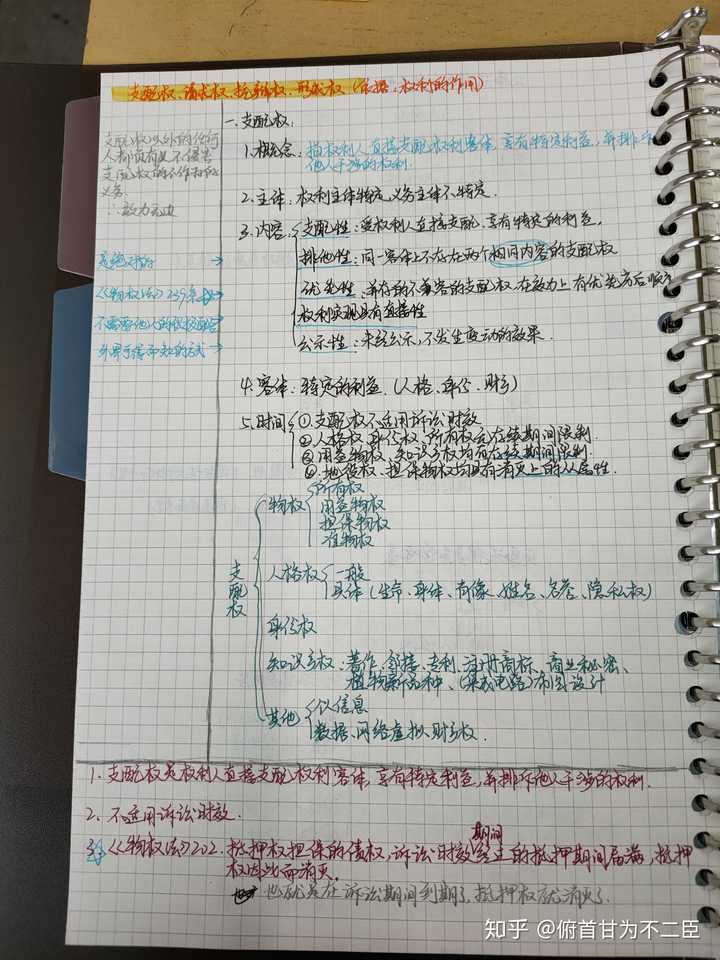 支配权、请求权、抗辩权、形成权（依据：权利的作用）
支配权以外的任何
人都负有且不侵害
支配权的不作为的
义务.
∴效力无边
是绝对的
《物权法》239条
不需要他人的积极配合
外界可得而知的方式
一.支配权.
1.概念：指权利人直接支配权利客体，享有特定利益，并排斥
他人干涉的权利.
2.主体：权利主体特定，义务主体不特定.
3.内容：支配性：受权利人直接支配、享有特定的利益，
排他性：同一客体上不存在两个相同内容的支配权
优先性：并存的不兼容的支配权，在效力上有优先先后顺序
权利实现具有直接性
公示性：未经公示，不发生变动的效果.
4.客体：特定的利益.（人格、身份、财产）
5.时间①支配权不适用诉讼时效
②人格权、身份权、所有权无存续期间限制.
③用益物权、知识产权均有存续期间限制.
④地役权、担保物权均具有消灭上的从属性.
支配权
物权 所有权
用益物权
担保物权
准物权
人格权 一般
具体（生命、身体、肖像、姓名、名誉、隐私权）
身份权
知识产权：著作、邻接、专利、注册商标、商业秘密、
植物新品种、（集成电路）布图设计
其他 个人信息
数据、网络虚拟财产权.
1.支配权是权利人直接支配权利客体，享有特定利益，并排斥他人干涉的权利.
2.不适用诉讼时效.
3.《物权法》202.抵押权担保的债权，诉讼时效期间经过的抵押期间届满，抵押
权因此而消灭.
也就是在诉讼期间到期了，抵押权就消灭了.
知乎 @俯首甘为不二臣